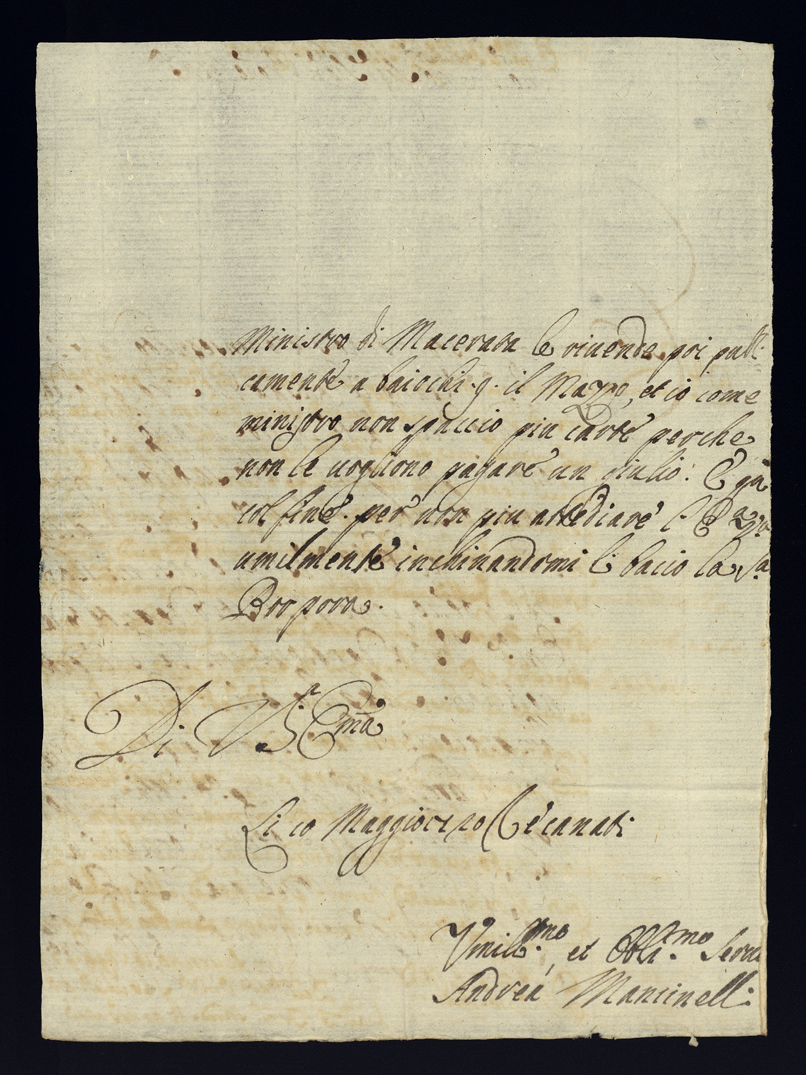 Ministro di Macerata le riuende poi publi
camente a baiochi .9. il Mazzo, et io come
ministro non spaccio piu carte perche
non le uogliono pagare un giulio: E qá
col fine per non piu attediare l' E
umilmente inchinandomi li bacio la Sa
Porpora.
Di V. Sª Emã
Li 10 Maggio Recanati
Vmill.mo et Obli.mo Seru
Andrea Mancinelli